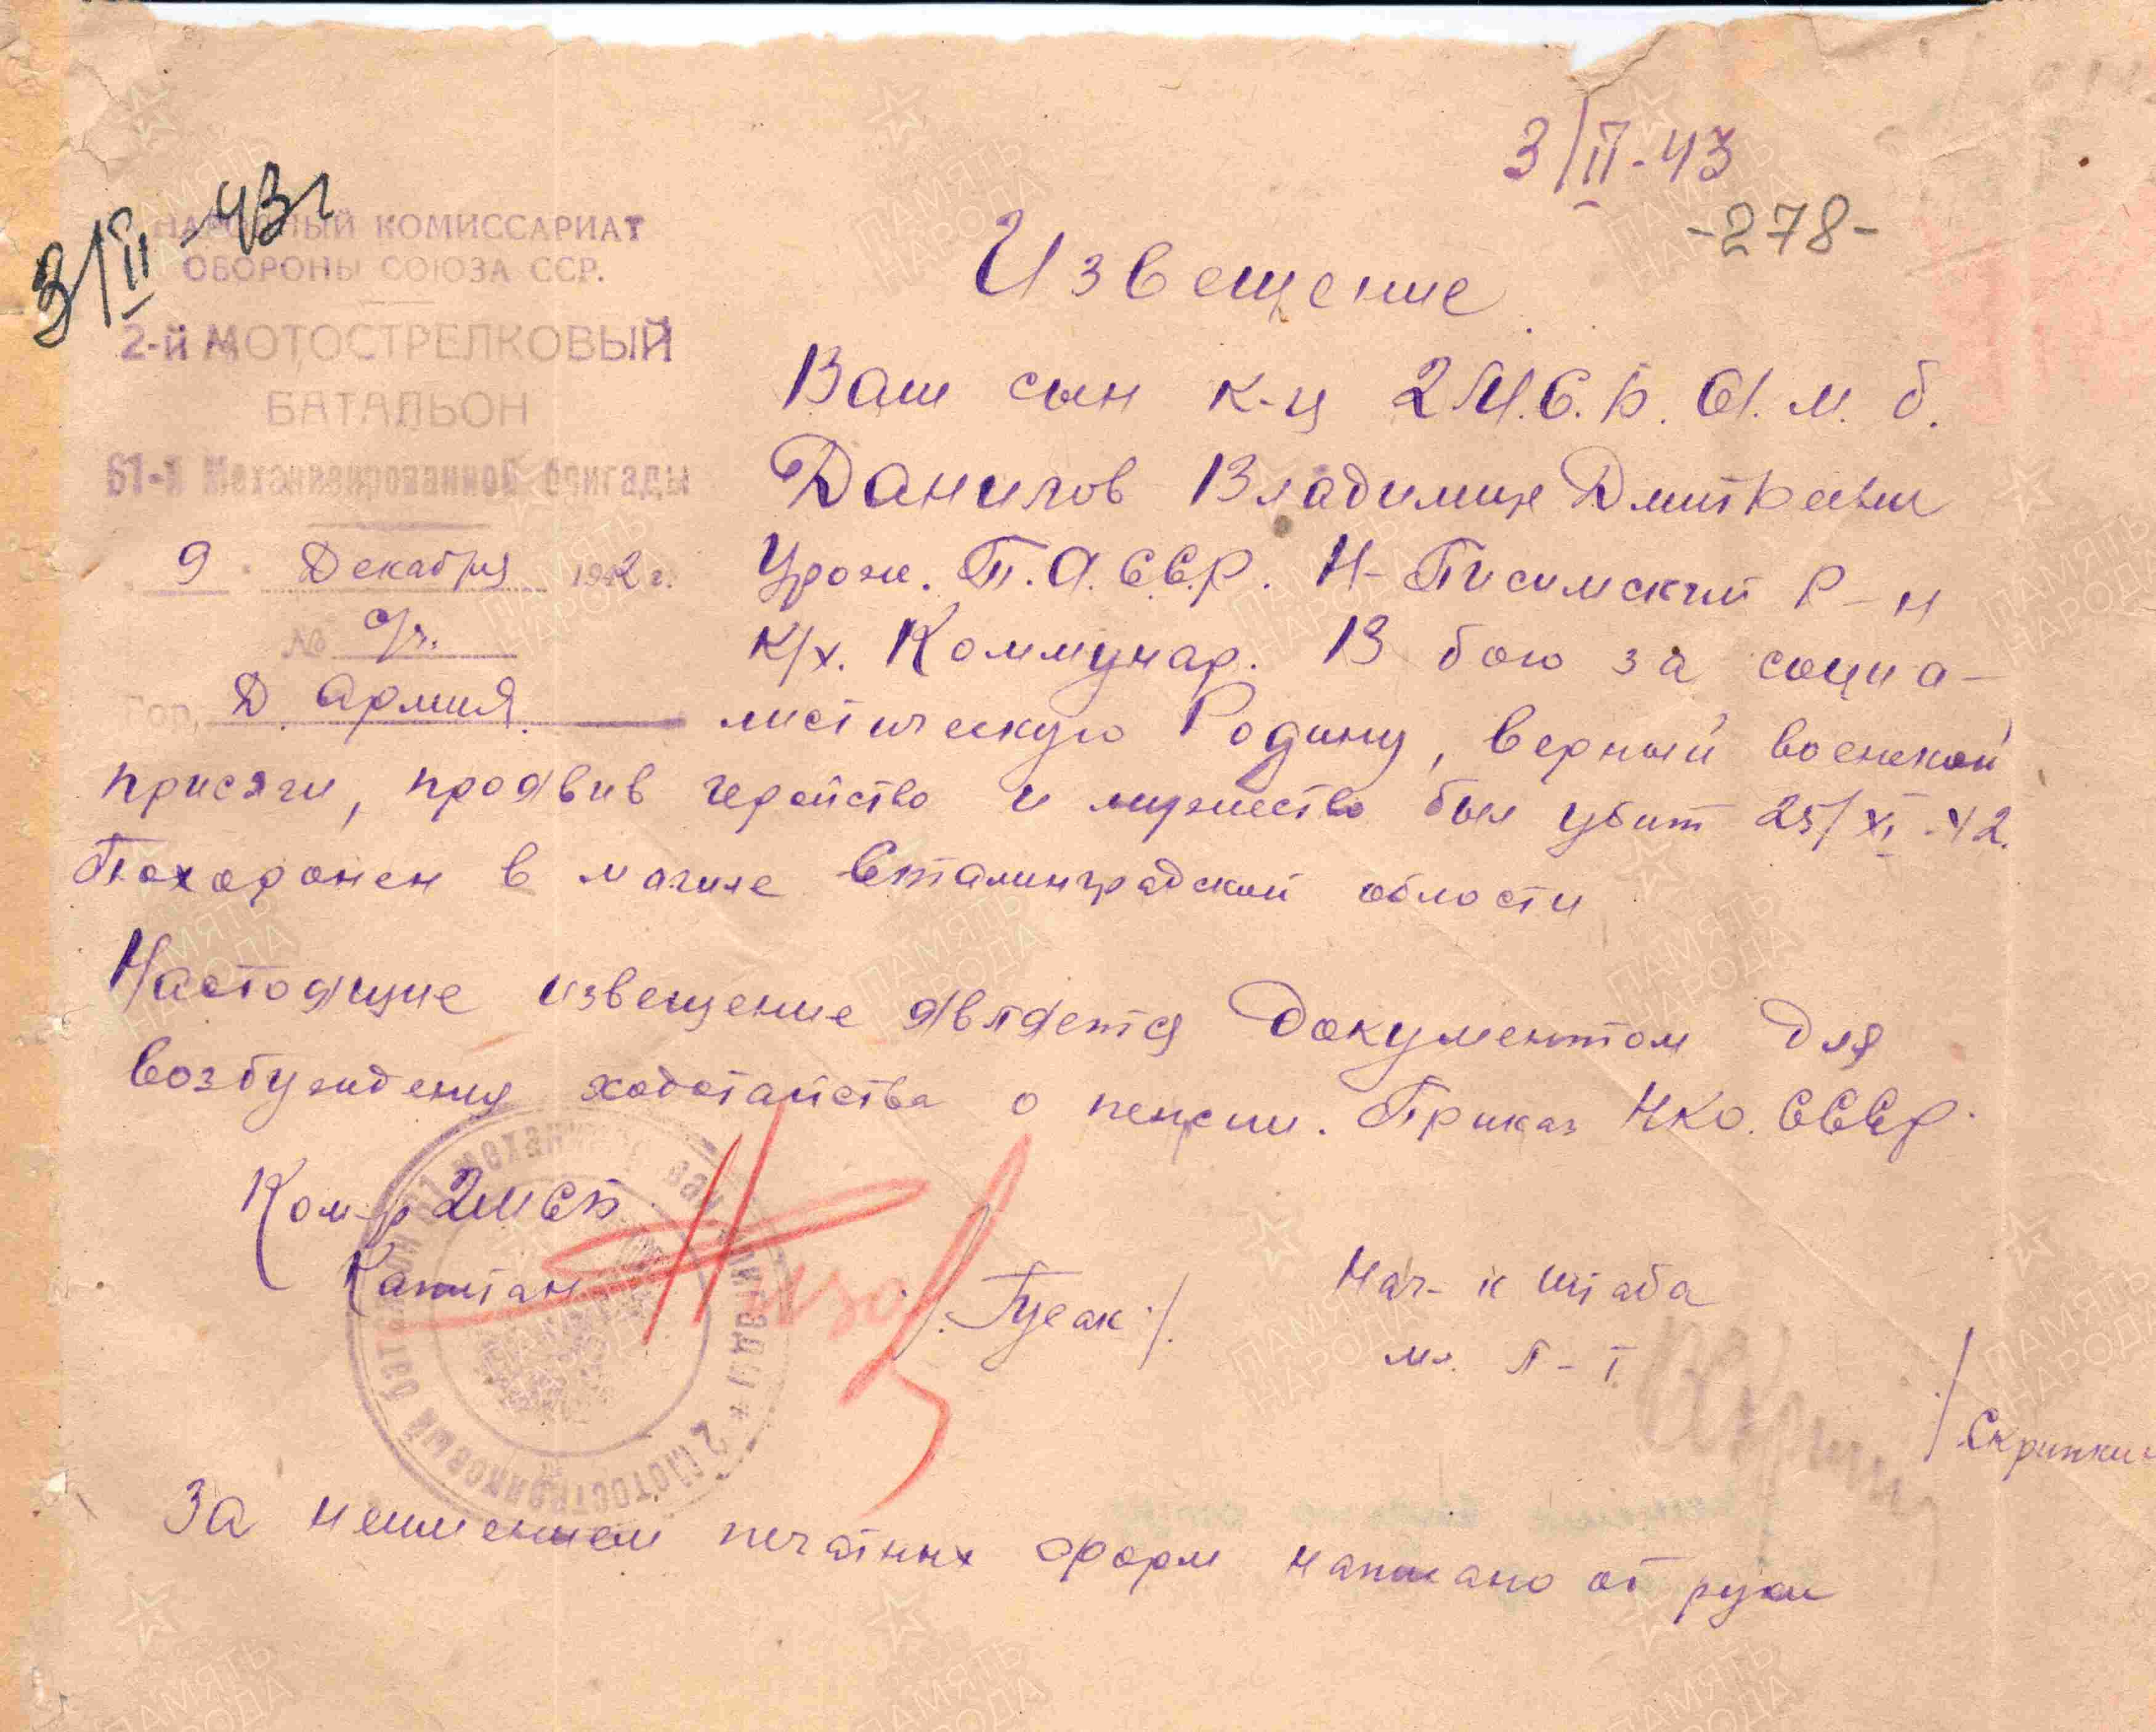 3/II-43
-278-
3/II-43г
НАРОДНЫЙ КОМИССАРИАТ
ОБОРОНЫ СОЮЗА ССР.
2-й МОТОСТРЕЛКОВЫЙ
БАТАЛЬОН
61-й Механизированной бригады
9 Декабря 1942 г.
№ с/ч.
Гор. Д. Армия.
Извещение
Ваш сын к-ц 2 М.С.Б. 61. м. б.
Данилов Владимир Дмитревич
Урож. Т.А.ССР. Н-Писимский р-н
к/х. Коммунар. В бою за социа-
листическую Родину, верный военской
присяги, проявив геройство и мужество был убит 25/XI-42.
Похоронен в могиле Сталинградской области
Настоящие извещение является документом для
возбуждения ходотайства о пенсии. Приказ НКО. СССР.
Ком-р 2МСБ
Капитан /. Гусак ./
Нач-к штаба
мл. л-т /. Скрипкин
За неимением печатных форм написано от руки
ПАМЯТЬ
НАРОДА